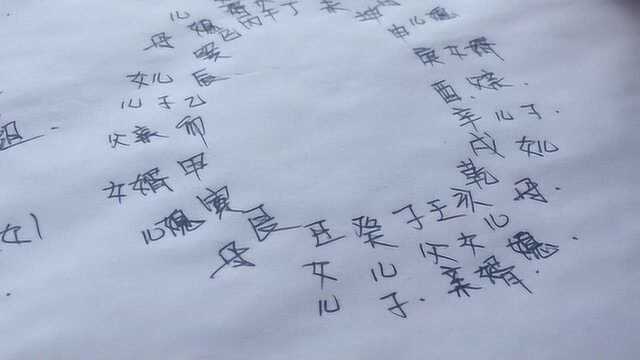 儿媳巳丙午丁未
申儿媳
母巽
庚女婿
女儿辰
酉
儿子乙
辛儿子
父亲卯
戌女儿
女婿甲
乾母
儿媳寅
母艮
丑女儿
癸儿子
子父亲
壬女婿
亥儿媳